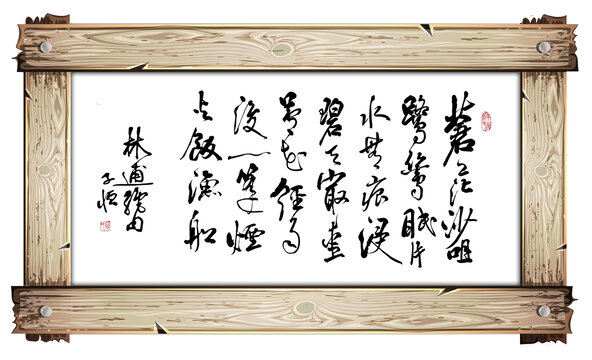 蒼茫沙咀
鷺鷥眠片
水無痕浸
碧天最愛
蘆花經雨
後一篷煙
火飯漁船
林逋